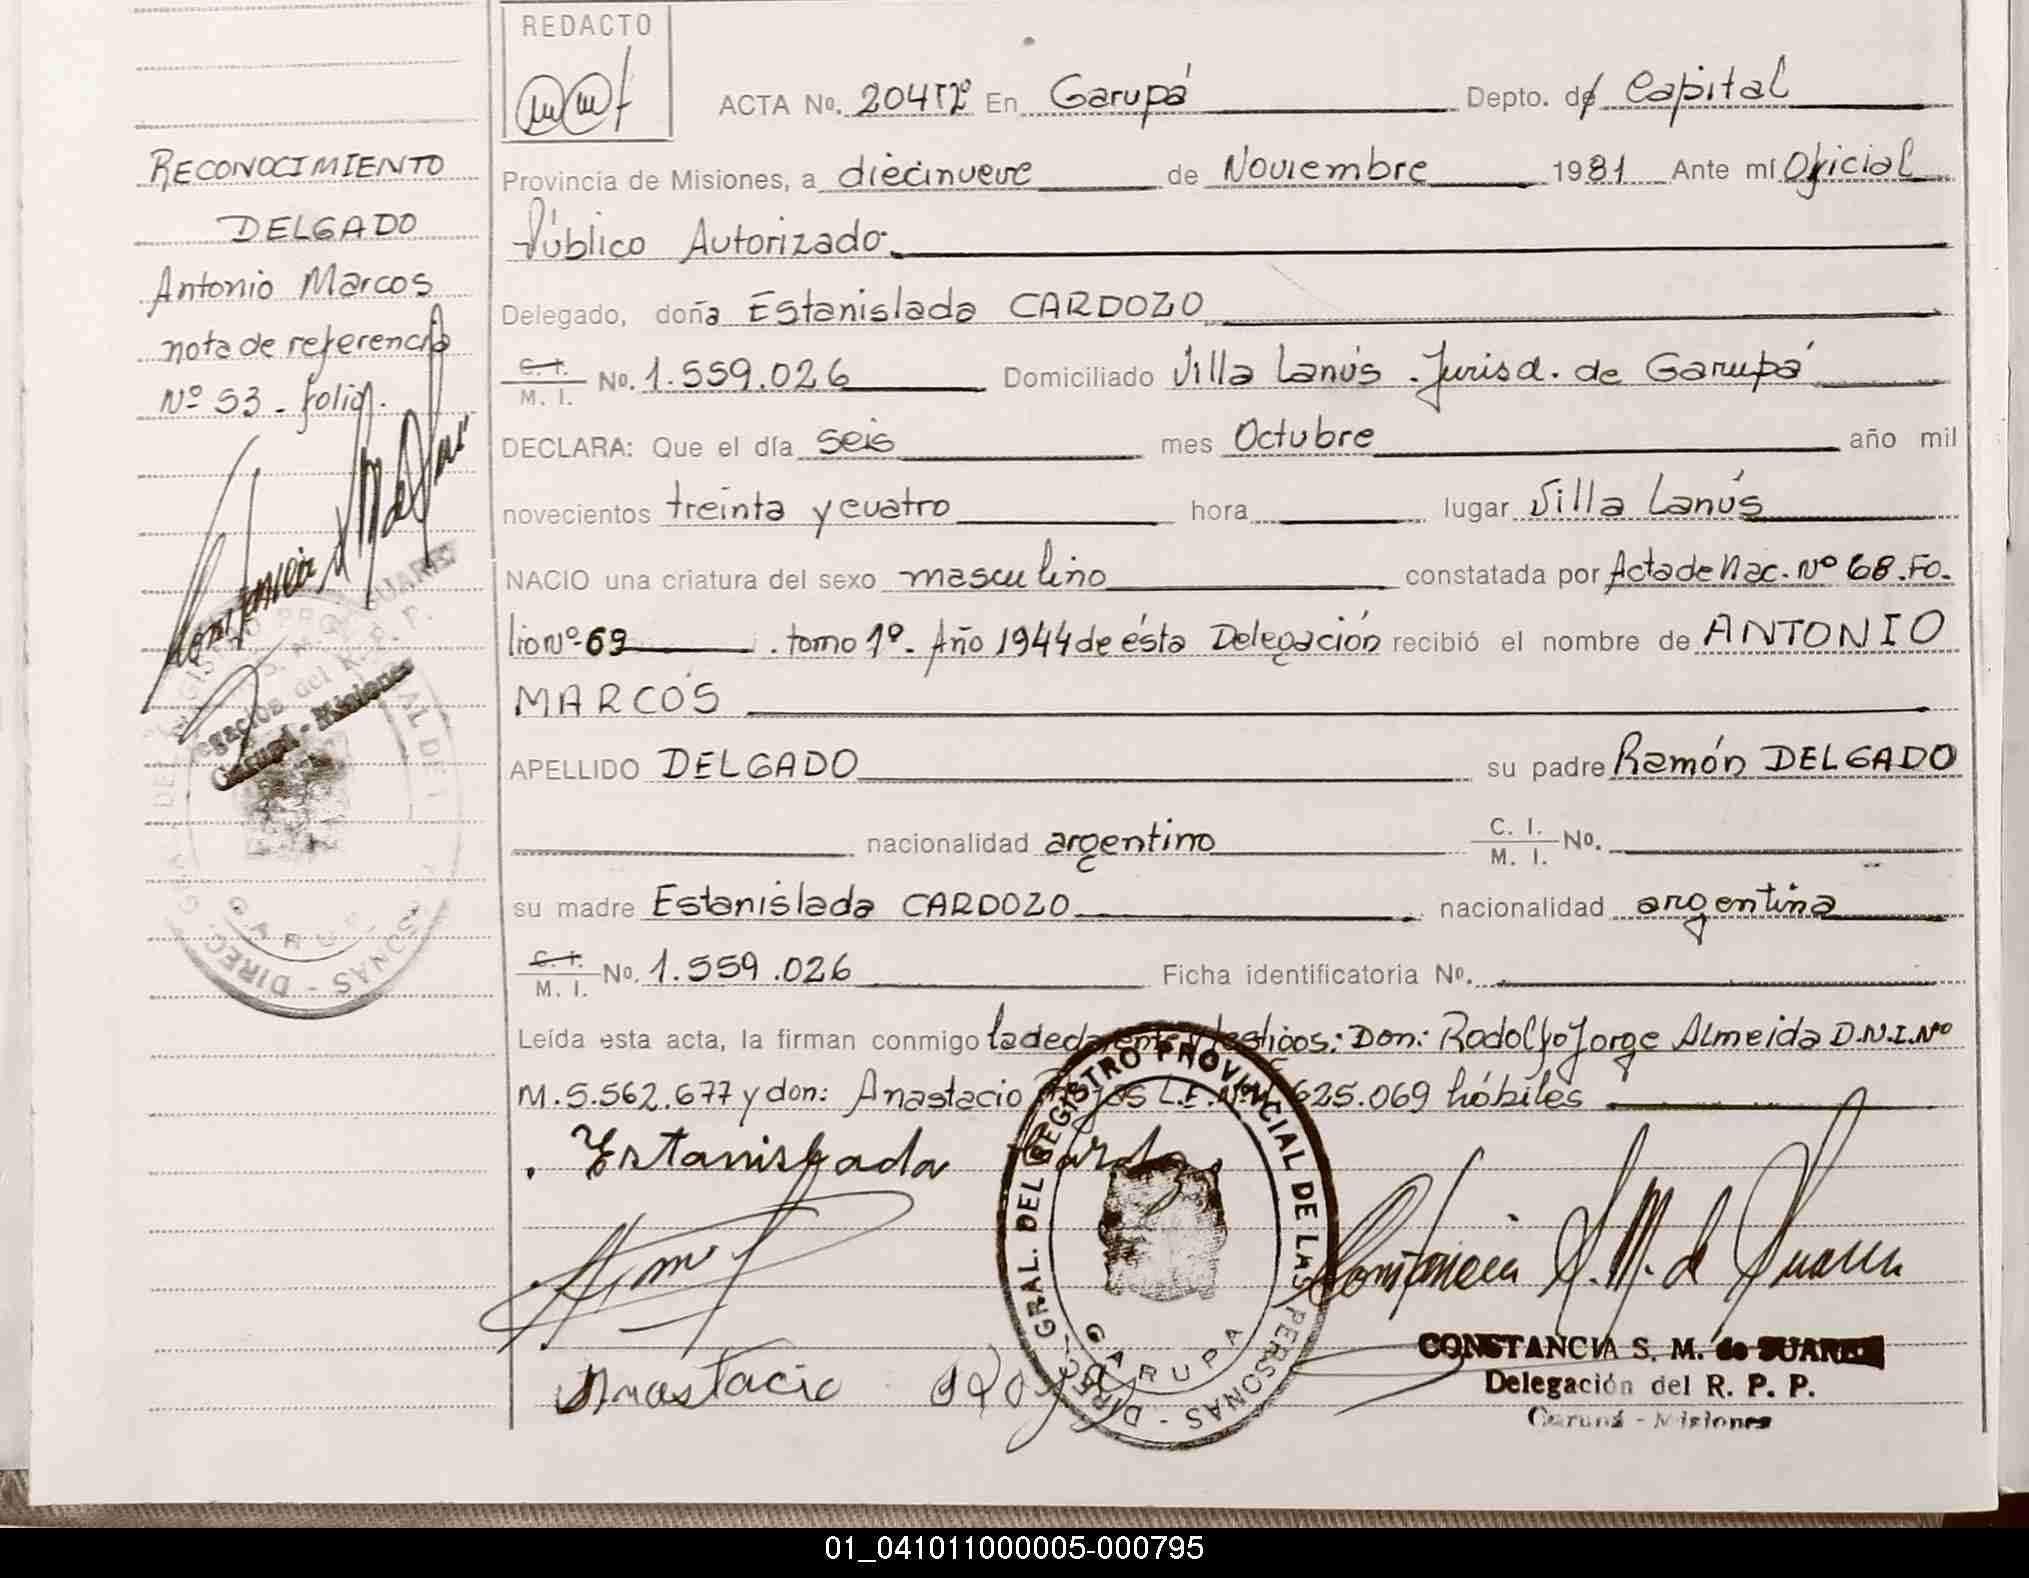 REDACTO
ACTA No. 204Tº2º En Garupá Depto. de Capital
RECONOCIMIENTO
DELGADO
Antonio Marcos
nota de referencia
Nº 53 - folio.
Provincia de Misiones, a diecinueve de Noviembre 1981 Ante mí Oficial
Público Autorizado.
Delegado, doña Estanislada CARDOZO
C. I.
M. I. No. 1.559.026 Domiciliado Villa Lanús . Jurisd. de Garupá
DECLARA: Que el día seis mes Octubre año mil
novecientos treinta y cuatro hora lugar Villa Lanús
NACIO una criatura del sexo masculino constatada por Acta de Nac. Nº 68. Fo-
lio Nº 69 . tomo 1º. Año 1944 de ésta Delegación recibió el nombre de ANTONIO
MARCOS
APELLIDO DELGADO su padre Ramón DELGADO
nacionalidad argentino C. I.
M. I. No.
su madre Estanislada CARDOZO nacionalidad argentina
C. I.
M. I. No. 1.559.026 Ficha identificatoria No.
Leída esta acta, la firman conmigo la declarante y testigos: Don: Rodolfo Jorge Almeida D.N.I. Nº
M. 5.562.677 y don: Anastacio L.E. 625.069 hábiles
Estanislada
Constancia S. M. de Suarez
Anastacio
DIREC. GRAL. DEL REGISTRO PROVINCIAL DE LAS PERSONAS -
GARUPA
CONSTANCIA S. M. de SUAREZ
Delegación del R. P. P.
Garupá - Misiones
01_041011000005-000795